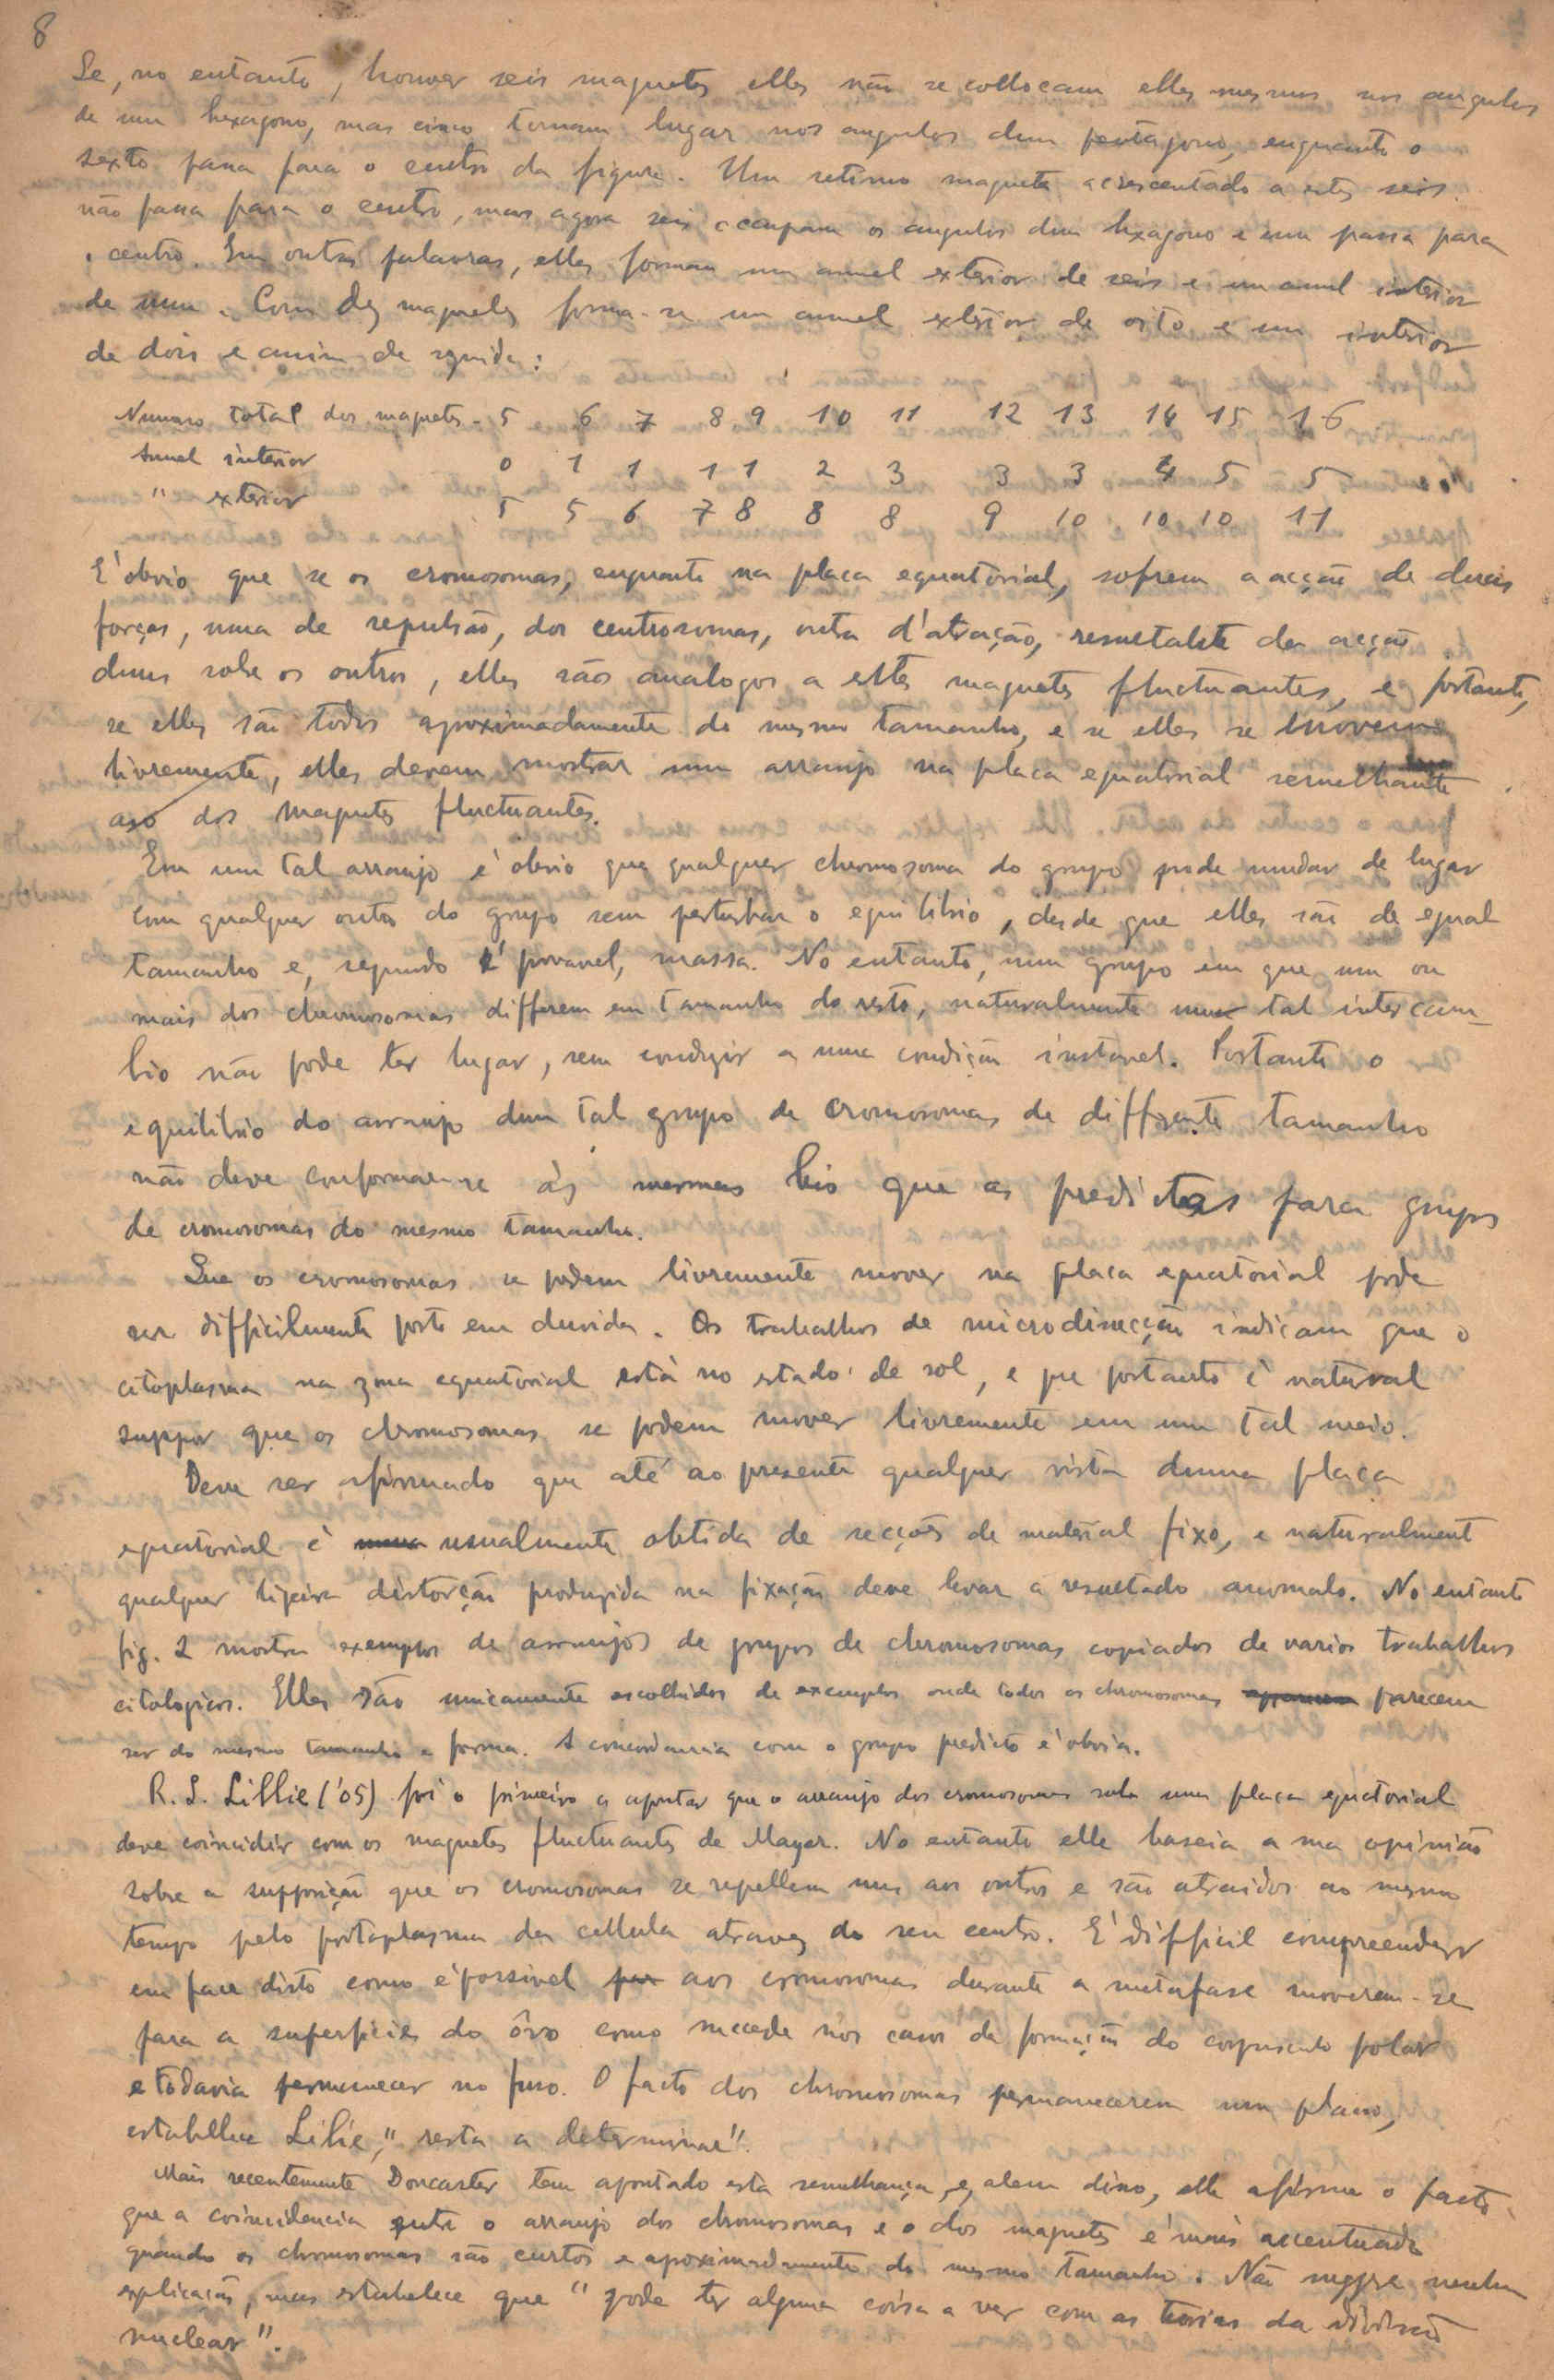 8
Se, no entanto, houver seis magnetes elles não se collocam elles mesmos nos angulos
de um hexagono, mas cinco tomam lugar nos angulos dum pentagono, enquanto o
sexto passa para o centro da figura. Um setimo magnete acrescentado a estes seis
não passa para o centro, mas agora seis occupam os angulos dum hexagono e um passa para
o centro. Em outras palavras, elles formam um annel exterior de seis e um annel interior
de um. Com dez magnetes forma-se um annel exterior de oito e um interior
de dois e assim de seguida:
Numero total dos magnetes - 5 6 7 8 9 10 11 12 13 14 15 16
Annel interior 0 1 1 1 1 2 3 3 3 4 5 5
" exterior 5 5 6 7 8 8 8 9 10 10 10 11
E' obvio que se os cromosomas, enquanto na placa equatorial, sofrem a acção de duas
forças, uma de repulsão, dos centrosomas, outra d'atração, resultante da acção
duns sobre os outros, elles são analogos a estes magnetes fluctuantes, e portanto,
se elles são todos aproximadamente do mesmo tamanho, e se elles se movem
livremente, elles devem mostrar um arranjo na placa equatorial semelhante
aso dos magnetes fluctuantes.
Em um tal arranjo é obvio que qualquer chromosoma do grupo pode mudar de lugar
com qualquer outro do grupo sem perturbar o equilibrio, desde que elles são de egual
tamanho e, segundo é provavel, massa. No entanto, num grupo em que um ou
mais dos chromosomas differem em tamanho do resto, naturalmente um tal intercam-
bio não pode ter lugar, sem conduzir a uma condição instavel. Portanto o
equilibrio do arranjo dum tal grupo de cromosomas de differente tamanho
não deve conformar-se ás mesmas leis que as predictas para grupos
de cromosomas do mesmo tamanho.
Que os cromosomas se podem livremente mover na placa equatorial pode
ser difficilmente posto em duvida. Os trabalhos de microdissecção indicam que o
citoplasma na zona equatorial está no estado de sol, e que portanto é natural
suppor que os chromosomas se podem mover livremente em um tal meio.
Deve ser afirmado que até ao presente qualquer vista duma placa
equatorial é usualmente obtida de secções de material fixo, e naturalment
qualquer ligeira distorção produzida na fixação deve levar a resultado anomalo. No entanto
fig. 2 mostra exemplos de arranjos de grupos de chromosomas copiados de varios trabalhos
citologicos. Elles são unicamente escolhidos de exemplos onde todos os chromosomas parecem
ser do mesmo tamanho e forma. A concordancia com o grupo predicto é obvia.
R. S. Lillie ('05) foi o primeiro a apontar que o arranjo dos cromosomas sobre uma placa equatorial
deve coincidir com os magnetes fluctuantes de Mayer. No entanto elle baseia a sua opinião
sobre a supposição que os cromosomas se repellem uns aos outros e são atraidos ao mesmo
tempo pelo protoplasma da cellula atravez do seu centro. E' difficil compreender
em face disto como é possivel aos cromosomas durante a metafase moverem-se
para a superficie do ôvo como succede nos casos da formação do corpusculo polar
e todavia permanecer no fuso. O facto dos chromosomas permanecerem num plano,
estabelece Lilie, "resta a determinar".
Mais recentemente Doncaster tem apontado esta semelhança, e, alem disso, elle afirma o facto
que a coincidencia entre o arranjo dos chromosomas e o dos magnetes é mais accentuada
quando os chromosomas são curtos e aproximadamente do mesmo tamanho. Não sugere nenhuma
explicação, mas estabelece que "pode ter alguma coisa a ver com as teorias da divisão
nuclear".